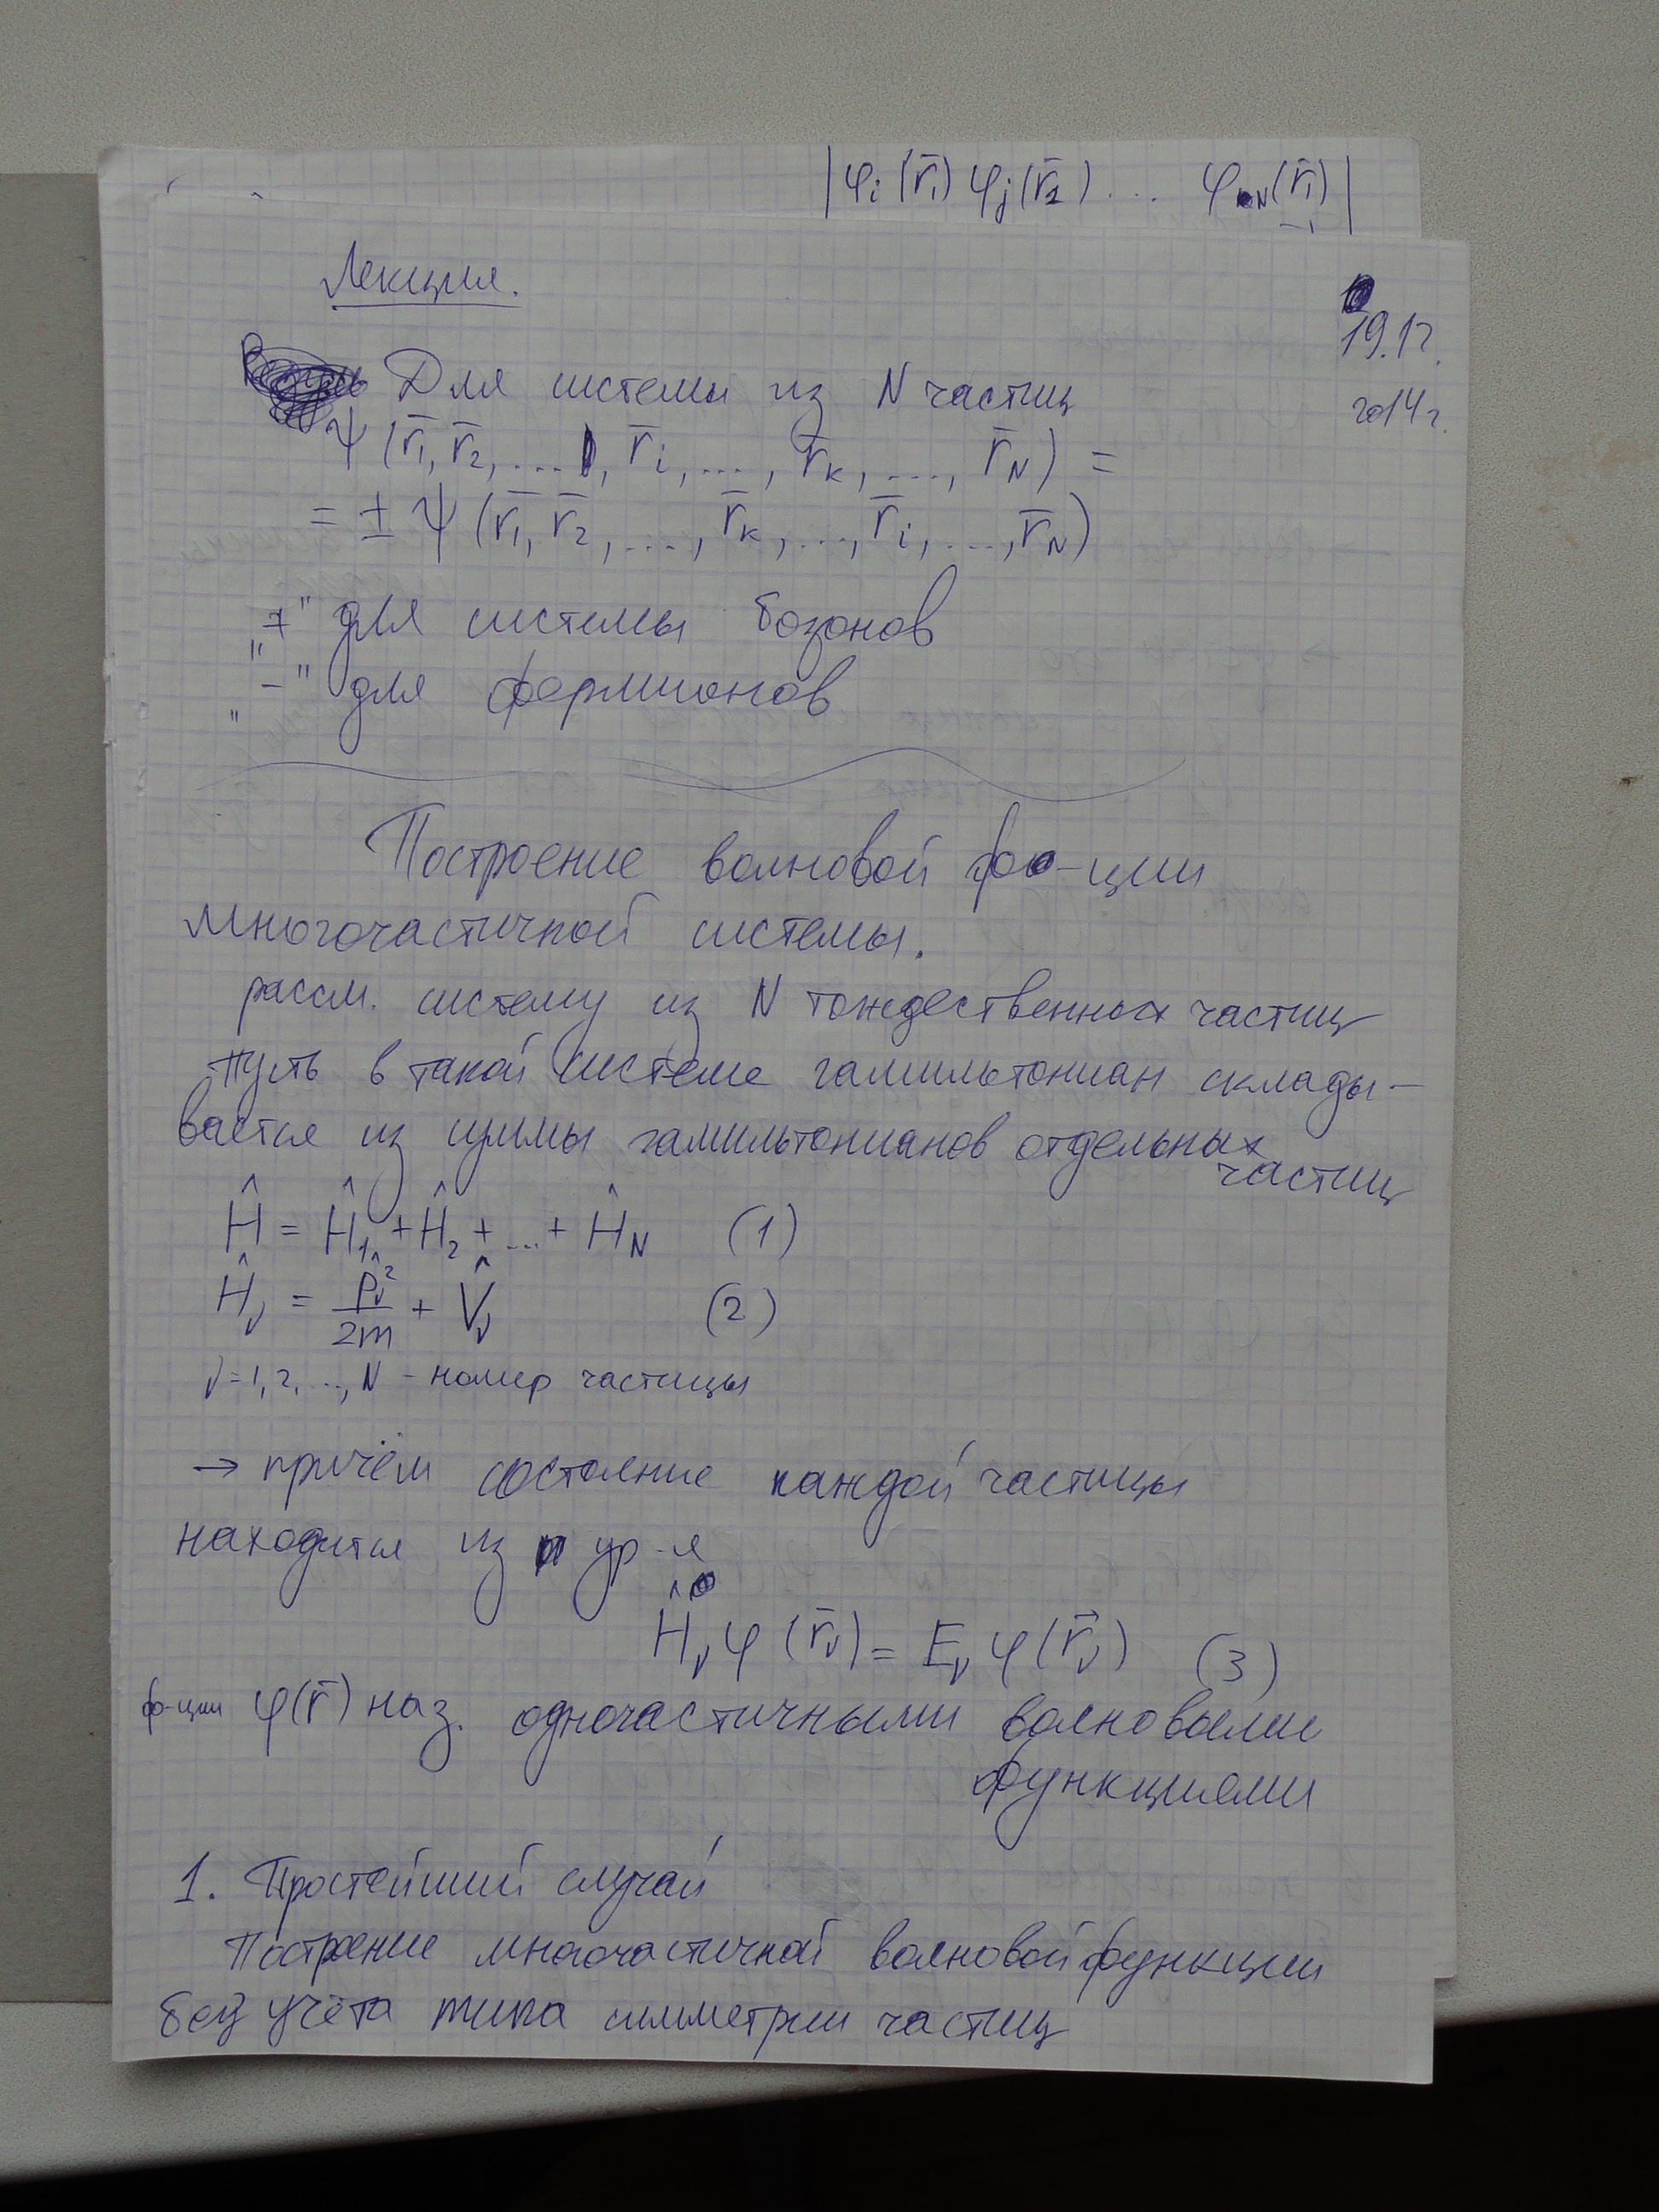 |φi(r̄1) φj(r̄2) .... φN(r̄1)|
Лекция.
19.12.
2014г.
Для системы из N частиц
ψ(r̄1, r̄2, ..., r̄i, ..., r̄k, ..., r̄N) =
= ± ψ(r̄1, r̄2, ..., r̄k, ..., r̄i, ..., r̄N)
„+" для системы бозонов
„-" для фермионов
Построение волновой ф-ции
многочастичной системы.
рассм. систему из N тождественных частиц
Пусть в такой системе гамильтониан склады-
вается из суммы гамильтонианов отдельных
частиц
Ĥ = Ĥ1 + Ĥ2 + ... + ĤN (1)
Ĥν = p̂ν²/2m + V̂ν (2)
ν = 1, 2, ..., N - номер частицы
→ причём состояние каждой частицы
находится из ур-я
Ĥν φ(r̄ν) = Eν φ(r⃗ν) (3)
ф-ции φ(r̄) наз. одночастичными волновыми
функциями
1. Простейший случай
Построение многочастичной волновой функции
без учёта типа симметрии частиц